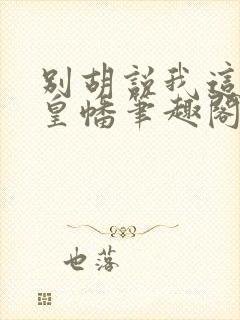 别胡说我这
皇幡笔趣阁
也落